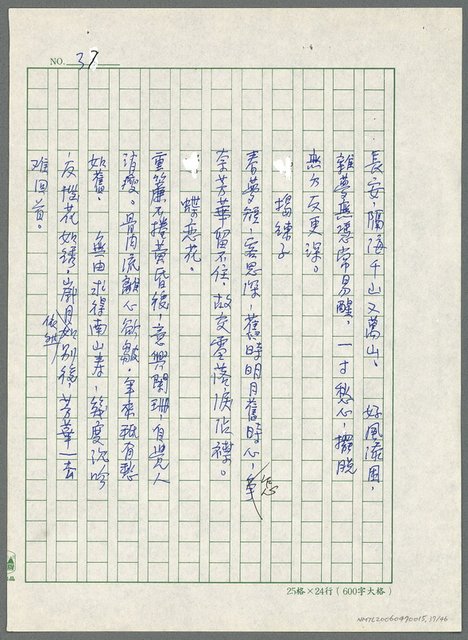 NO. 37
長安，隔海千山又萬山。 好風滿
雜夢無憑常易醒，一寸愁心，擺脫
無方反更深。
搗練子
春夢短，客思深，舊時明月舊時心，怎
奈芳華留不住，故交零落淚沾襟。
蝶恋花。
重簾不捲黃昏後，意興闌珊，自覺人
消瘦。骨肉流離心欲皺，年來秖有愁
如舊。 無由求得南山寿，幾度沉吟
反惜花如綉，歲月如別後，芳華一去
依然
难回首。
25格×24行（600字大格）
NMTL20060490015, 37/46